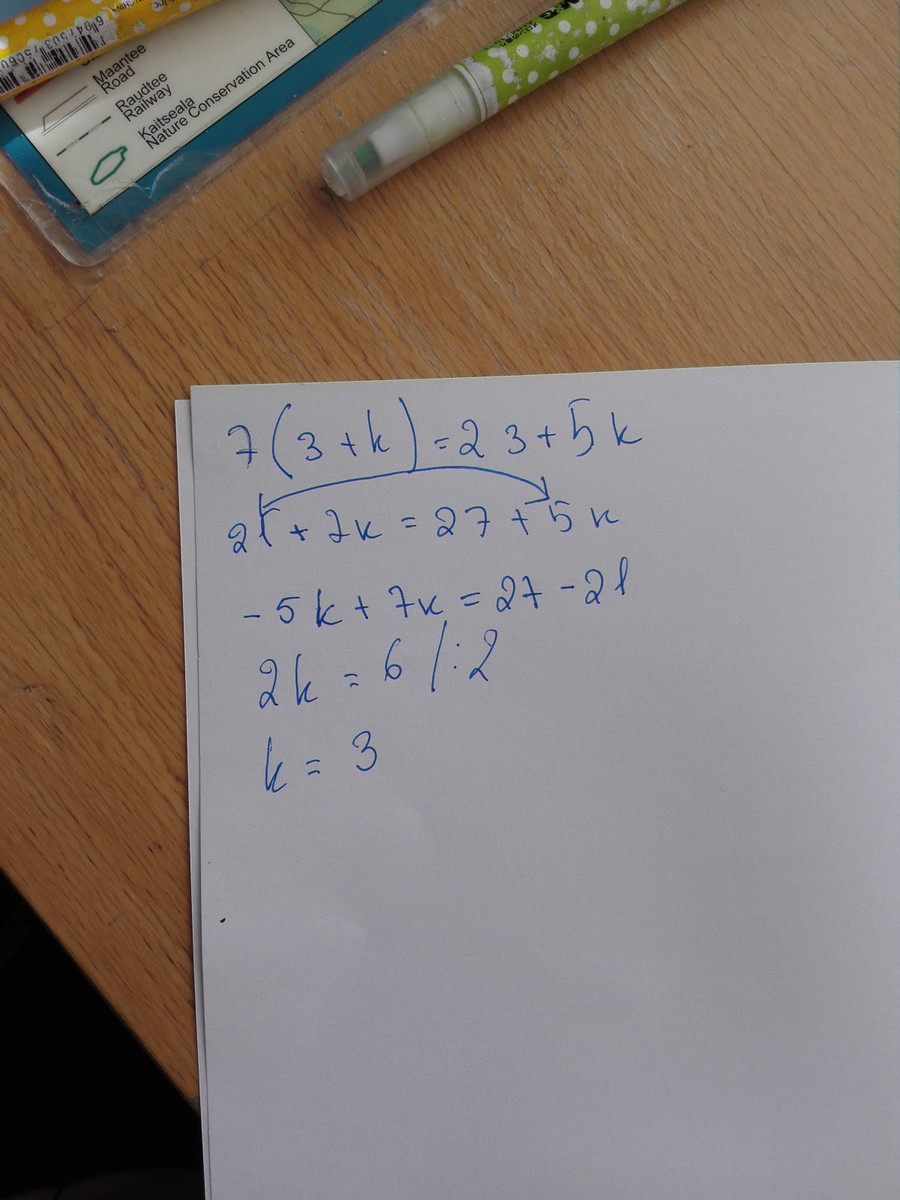 Maantee
Road
Raudtee
Railway
Kaitseala
Nature Conservation Area
7(3+k)=23+5k
21+7k=27+5k
-5k+7k=27-21
2k=6/:2
k=3